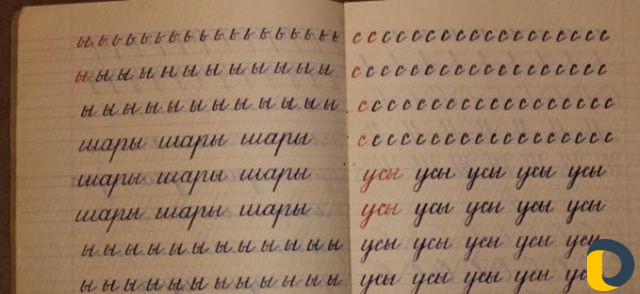 ь ь ь ь ь ь ь ь ь ь ь ь ь ь ь ь ь ь
ы ы ы ы ы ы ы ы ы ы ы ы
ы ы ы ы ы ы ы ы ы ы ы ы
шары шары шары
шары шары шары
шары шары шары
ы ы ы ы ы ы ы ы ы ы ы ы
ы ы ы ы ы ы ы ы ы ы ы ы
с с с с с с с с с с с с с с с с с с
с с с с с с с с с с с с с с с с с с
с с с с с с с с с с с с с с с с с с
с с с с с с с с с с с с с с с с с с
усы усы усы усы усы
усы усы усы усы усы
усы усы усы усы усы
усы усы усы усы